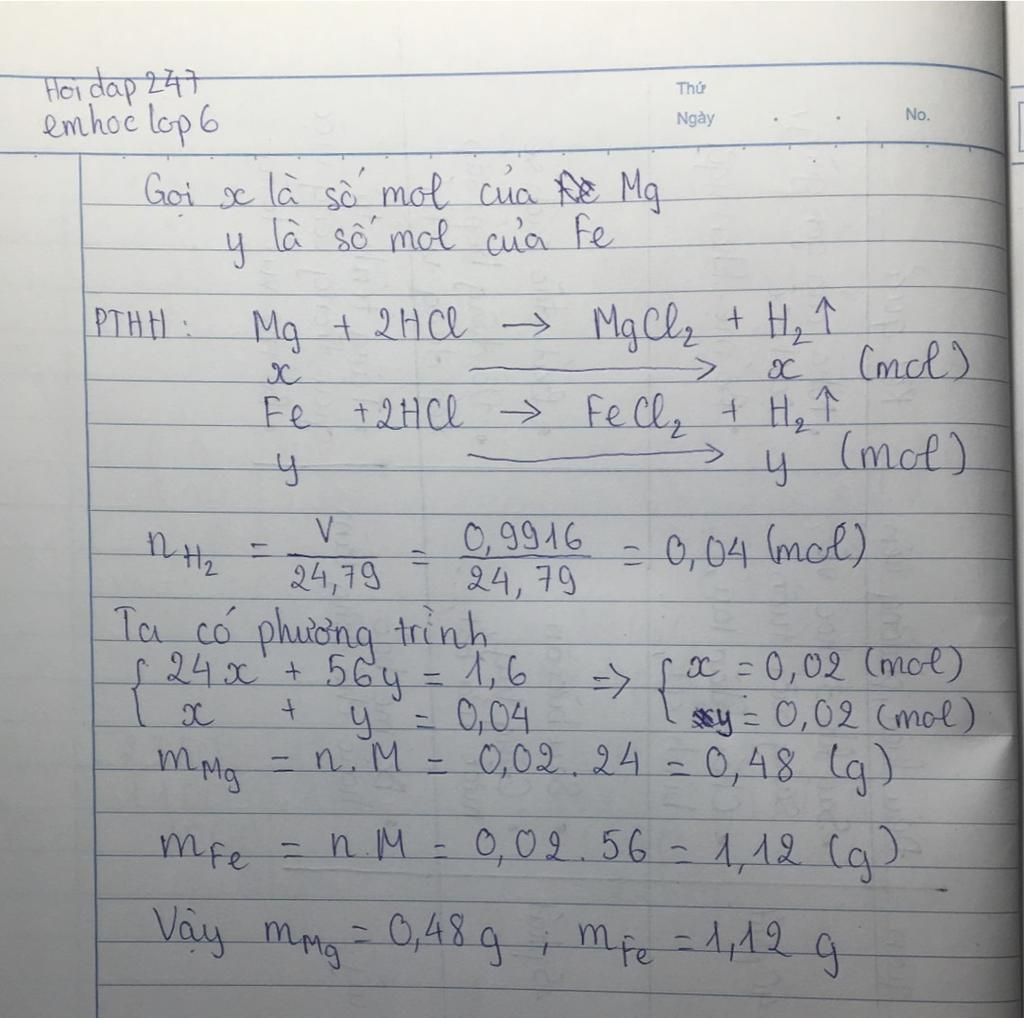 Hoidap 247
emhoc lop 6
Thứ
Ngày . . No.
Gọi x là số mol của Mg
y là số mol của Fe
PTHH: Mg + 2HCl → MgCl₂ + H₂↑
x → x (mol)
Fe + 2HCl → FeCl₂ + H₂↑
y → y (mol)
n_H₂ = V/24,79 = 0,9916/24,79 = 0,04 (mol)
Ta có phương trình
{ 24x + 56y = 1,6 => { x = 0,02 (mol)
{ x + y = 0,04 { y = 0,02 (mol)
m_Mg = n.M = 0,02.24 = 0,48 (g)
m_Fe = n.M = 0,02.56 = 1,12 (g)
Vậy m_Mg = 0,48 g ; m_Fe = 1,12 g